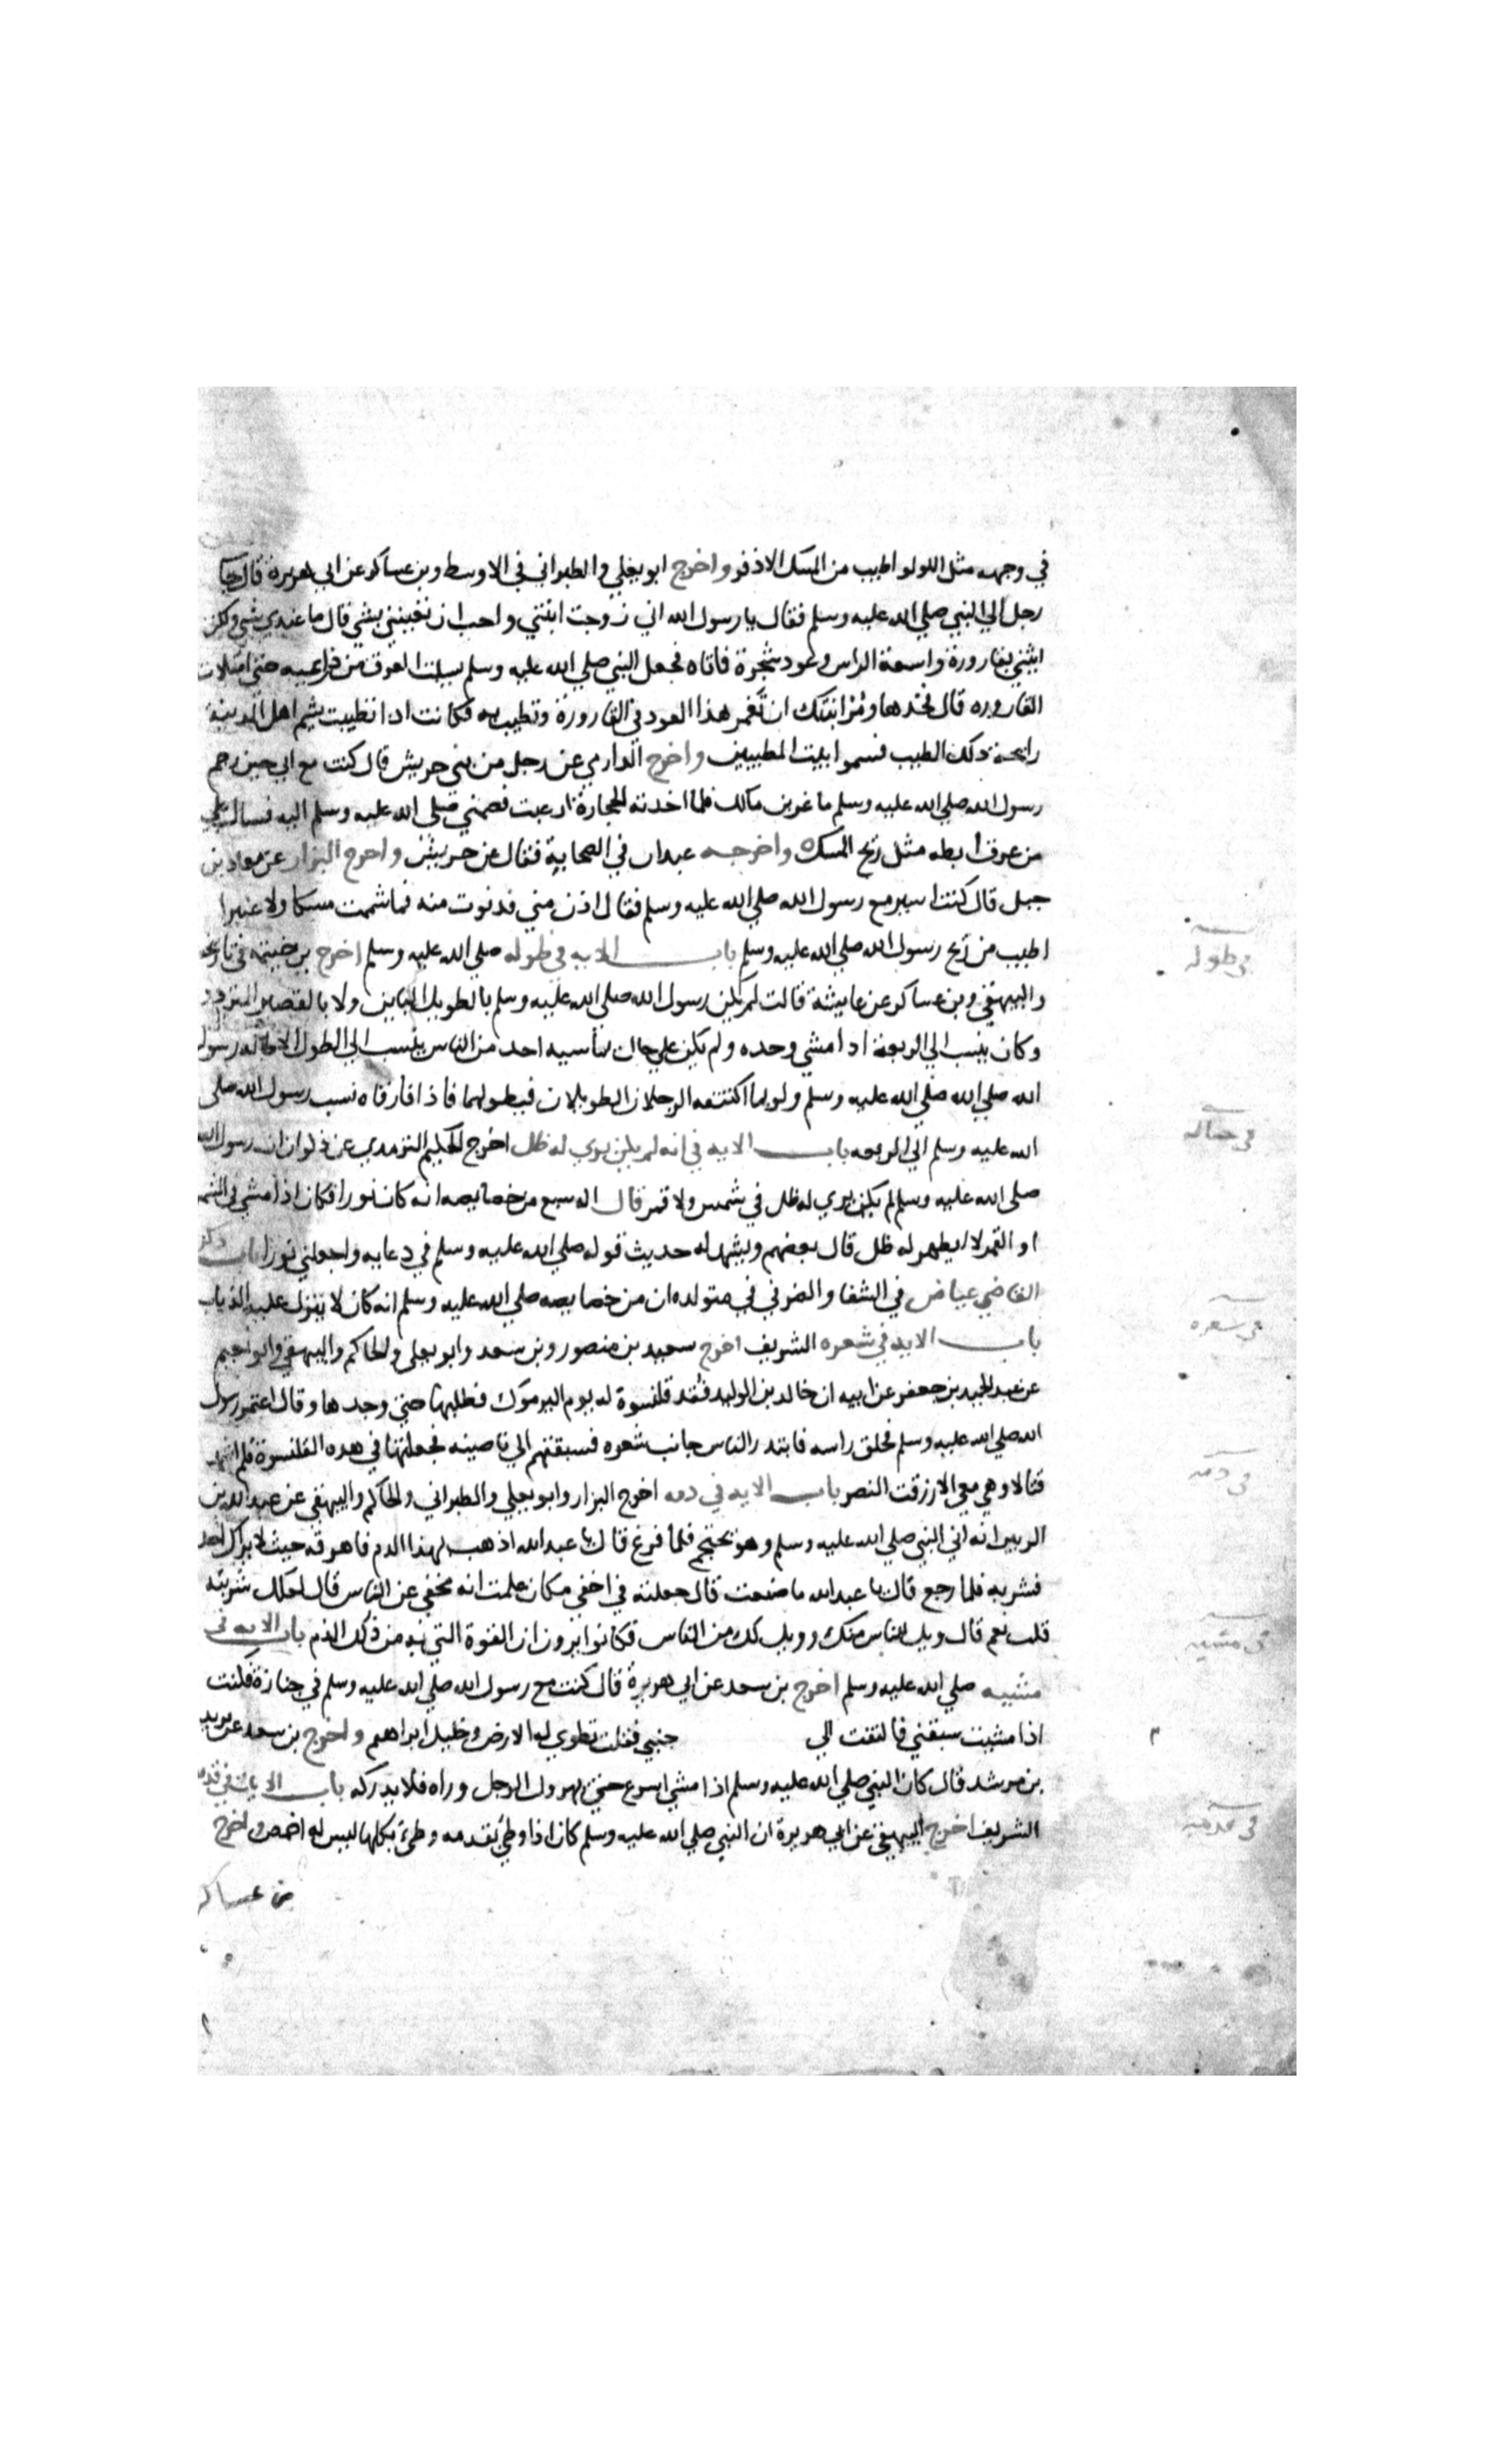 في وجهه مثل اللولو اطيب من المسك الاذفر واخرج ابو يعلي والطبراني في الاوسط وبن عساكر عن ابي هريرة قال جا
رجل الي النبي صلي الله عليه وسلم فقال يا رسول الله اني زوجت ابنتي واحب ان تعينني بشي قال ما عندي شي ولكن
ايتني بقارورة واسعة الراس وعود شجرة فاتاه فجعل النبي صلي الله عليه وسلم يسلت العرق من ذراعيه حتي امتلات
القاروره قال خدها ومر ابنتك ان تغمر هذا العود في القارورة وتطيب به فكانت ادا تطيبت يشم اهل المدينة
رايحة دلك الطيب فسموا بيت المطيبين واخرج الدارمي عن رجل من بني حريش قال كنت مع ابي حين رجم
رسول الله صلي الله عليه وسلم ماعز بن مالك فلما اخدته الحجارة ارعبت فضمني صلي الله عليه وسلم اليه فسال علي
من عرق ابطه مثل ريح المسك واخرجه عبدان في الصحابة فقال عن حريش واخرج البزار عن معاد بن
جبل قال كنت اسير مع رسول الله صلي الله عليه وسلم فقال ادن مني فدنوت منه فما شممت مسكا ولا عنبرا
اطيب من ريح رسول الله صلي الله عليه وسلم باب الايه في طوله صلي الله عليه وسلم اخرج بن خيثمه في تاريخه
والبيهقي وبن عساكر عن عايشة قالت لم يكن رسول الله صلي الله عليه وسلم بالطويل الباين ولا بالقصير المتردد
وكان ينسب الي الربعة ادا مشي وحده ولم يكن علي حال يماسيه احد من الناس ينسب الي الطول الا طاله رسول
الله صلي الله صلي الله عليه وسلم ولربما اكتنفه الرجلان الطويلان فيطولهما فاذا فارقاه نسب رسول الله صلي
الله عليه وسلم الي الربعه باب الايه في انه لم يكن يري له ظل اخرج الحكيم الترمدي عن ذكوان ان رسول الله
صلي الله عليه وسلم لم يكن يري له ظل في شمس ولا قمر قال بن سبع من خصايصه انه كان نورا فكان اذا مشي في الشمس
او القمر لا يظهر له ظل قال بعضهم ويشهد له حديث قوله صلي الله عليه وسلم في دعايه واجعلني نورا باب ذكر
القاضي عياض في الشفا والعزفي في مولده ان من خصايصه صلي الله عليه وسلم انه كان لا ينزل عليه الذباب
باب الايه في شعره الشريف اخرج سعيد بن منصور وبن سعد وابو يعلي والحاكم والبيهقي وابو نعيم
عن عبد الحميد بن جعفر عن ابيه ان خالد بن الوليد فقد قلنسوة له يوم اليرموك فطلبها حتي وجدها وقال اعتمر رسول
الله صلي الله عليه وسلم فحلق راسه فابتدر الناس جانب شعره فسبقتهم الي ناصيته فجعلتها في هده القلنسوة فلم اشهد
قتالا وهي معي الا رزقت النصر باب الايه في دمه اخرج البزار وابو يعلي والطبراني والحاكم والبيهقي عن عبد الله بن
الزبير انه اتي النبي صلي الله عليه وسلم وهو يحتجم فلما فرغ قال يا عبد الله اذهب بهذا الدم فاهرقه حيث لا يراك احد
فشربه فلما رجع قال يا عبد الله ما صنعت قال جعلته في اخفي مكان علمت انه مخفي عن الناس قال لعلك شربته
قلت نعم قال ويل للناس منك وويل لك من الناس فكانوا يرون ان القوة التي به من ذلك الدم باب الايه في
مشيه صلي الله عليه وسلم اخرج بن سعد عن ابي هريرة قال كنت مع رسول الله صلي الله عليه وسلم في جنازة فكنت
اذا مشيت سبقني فالتفت الي جنبي فقلت تطوي له الارض وخليل ابراهيم واخرج بن سعد عن يزيد
بن مرشد قال كان النبي صلي الله عليه وسلم اذا مشي اسرع حتي يهرول الرجل وراه فلا يدركه باب الايات في قدمه
الشريف اخرج البيهقي عن ابي هريرة ان النبي صلي الله عليه وسلم كان اذا وطي بقدمه وطي بكلها ليس له اخمص واخرج
بن عساكر
في طوله
في شعره
في دمه
في مشيه